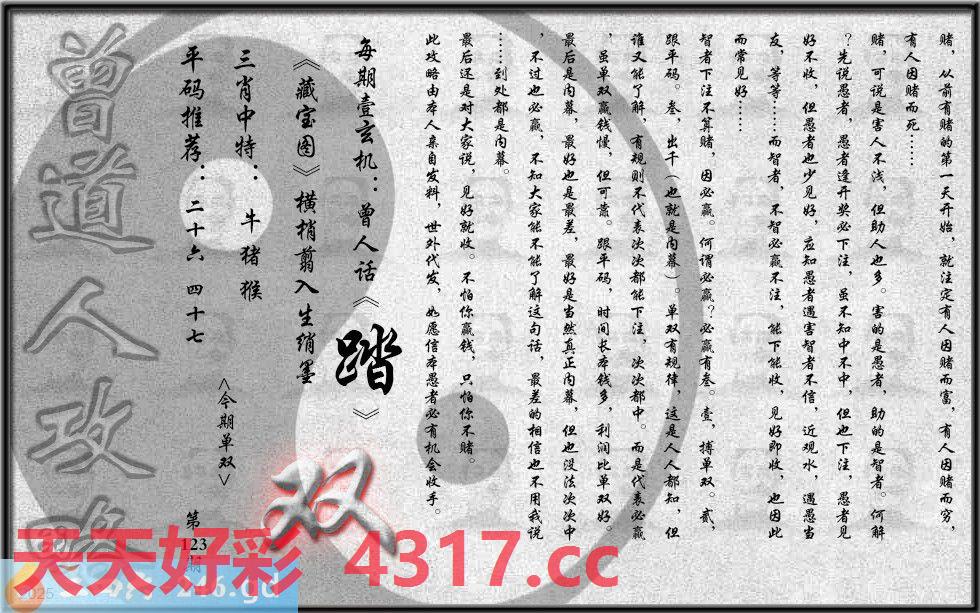 赌，从前有赌的第一天开始，就注定有人因赌而富，有人因赌而穷，
有人因赌而死……
赌，可说是害人不浅，但助人也多。害的是愚者，助的是智者。何解
？先说愚者，愚者逢开奖必下注，虽不知中不中，但也下注，愚者见
好不收，但愚者也少见好，应知愚者遇害智者不信，近观水，遇愚当
友，等等……而智者，不智必赢不注，能下能收，见好即收，也因此
而常见好……
智者下注不算赌，因必赢。何谓必赢？必赢有叁。壹，搏单双。贰，
跟平码。叁，出千（也就是内幕）。单双有规律，这是人人都知，但
谁又能了解，有规则不代表次次都能下注，次次都中。而是代表必赢
，虽单双赢钱慢，但可靠。跟平码，时间长本钱多，利润比单双好。
最后是内幕，最好也是最差，最好是当然真正内幕，但也没法次次中
，不过也必赢，不知大家能不能了解这句话，最差的相信也不用我说
……到处都是内幕。
最后还是对大家说，见好就收。不怕你赢钱，只怕你不赌。
此攻略由本人亲自发料，世外代发，如愿信本愚者必有机会收手。
每期壹玄机：曾人话《踏》
《藏宝图》横梢翦入生绡墨
三肖中特：牛猪猴
平码推荐：二十六 四十七
<今期单双>
双
第
123
期
曾道人攻略
天天好彩 4317.cc
2025